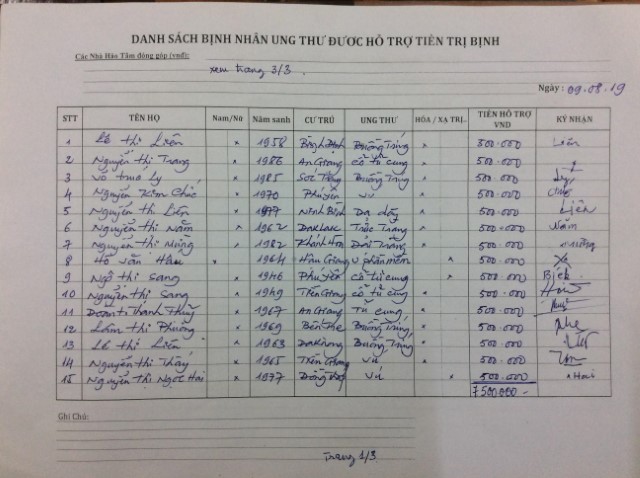 DANH SÁCH BỊNH NHÂN UNG THƯ ĐƯƠC HỖ TRỢ TIỀN TRỊ BỊNH
Các Nhà Hảo Tâm đóng góp (vnđ):
xem trang 3/3.
Ngày: 09.08.19
STT TÊN HỌ Nam/Nữ Năm sanh CƯ TRÚ UNG THƯ HÓA / XẠ TRỊ.. TIỀN HỖ TRỢ VND KÝ NHẬN
1 Lê thi Liên x 1958 Bình Định Buồng Trứng x 500.000 Liên
2 Nguyễn thi Trang x 1986 An Giang cổ tử cung x 500.000
3 Võ thuý Ly x 1985 Sóc Trăng Buồng Trứng x 500.000
4 Nguyễn Kim Chúc x 1970 Phú yên vú x 500.000
5 Nguyễn thi Liên x 1977 Ninh Bình Dạ dày x 500.000 Liên
6 Nguyễn thi Năm x 1962 Daklak Trực Tràng x 500.000 Năm
7 Nguyễn thi x 1982 Khánh Hòa Đại Tràng x 500.000
8 Hồ văn Hâu x 1964 Hâu Giang x 500.000
9 Ngô thi Sang x 1946 Phú yên cổ tử cung x 500.000
10 Nguyễn thi Sang x 1949 Tiền Giang cổ tử cung x 500.000
11 Doan thi Thanh Thuỷ x 1967 An Giang Tử cung x 500.000
12 Lâm thi Phường x 1969 Bến tre Buồng Trứng x 500.000
13 Lê thi Liên x 1963 Daknong Buồng Trứng x 500.000
14 Nguyễn thi Thấy x 1965 Tiền Giang Vú x 500.000
15 Nguyễn thi Ngọc Hai x 1977 Vú x 500.000 Hai
7500000 -
Ghi Chú:
Trang 1/3.